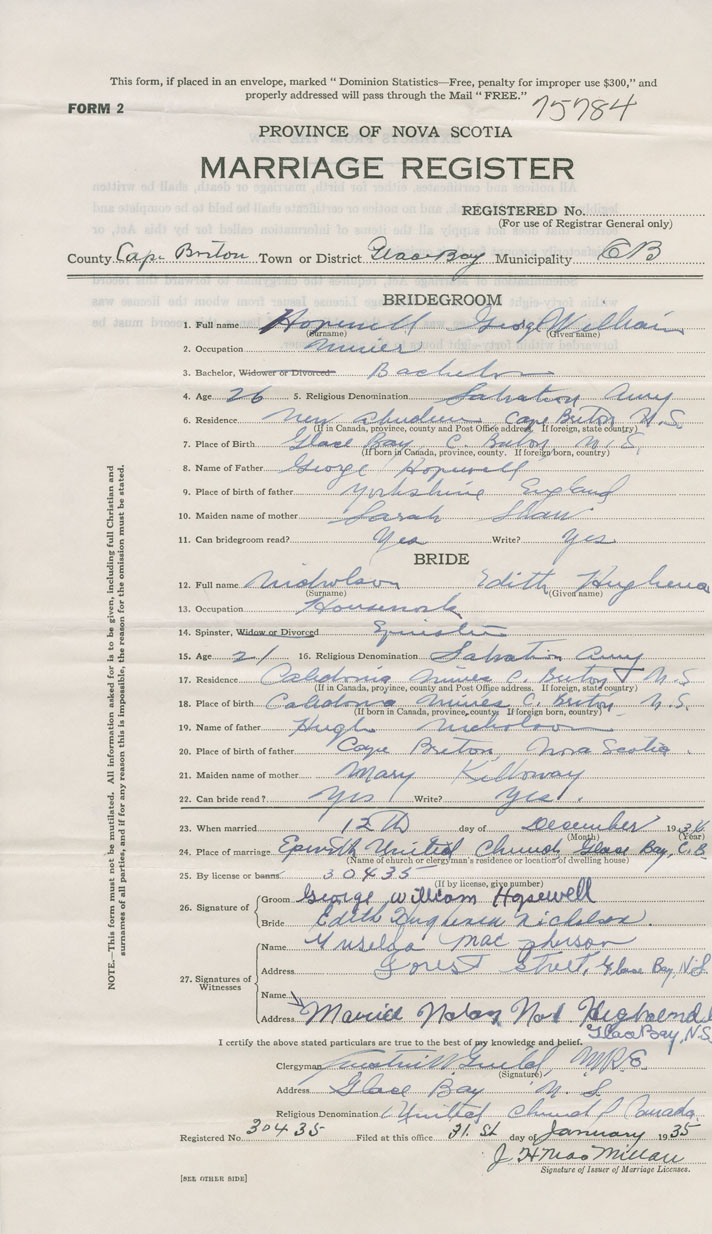 This form, if placed in an envelope, marked “ Dominion Statistics—Free, penalty for improper use $300,” and
properly addressed will pass through the Mail “ FREE.”
FORM 2
75784
PROVINCE OF NOVA SCOTIA
MARRIAGE REGISTER
REGISTERED No.
(For use of Registrar General only)
County Cape Breton Town or District Glace Bay Municipality CB
BRIDEGROOM
1. Full name Hopewell George William
(Surname) (Given name)
2. Occupation Miner
3. Bachelor, Widower or Divorced Bachelor
4. Age 26 5. Religious Denomination Salvation Army
6. Residence New Aberdeen Cape Breton N.S.
(If in Canada, province, county and Post Office address. If foreign, state country)
7. Place of Birth Glace Bay, C. Breton, N.S.
(If born in Canada, province, county. If foreign born, country)
8. Name of Father George Hopewell
9. Place of birth of father Yorkshire England
10. Maiden name of mother Sarah Shaw
11. Can bridegroom read? Yes Write? Yes
BRIDE
12. Full name Nicholson Edith Hughena
(Surname) (Given name)
13. Occupation Housework
14. Spinster, Widow or Divorced Spinster
15. Age 21 16. Religious Denomination Salvation Army
17. Residence Caledonia Mines C. Breton N.S
(If in Canada, province, county and Post Office address. If foreign, state country)
18. Place of birth Caledonia Mines C. Breton, N.S.
(If born in Canada, province, county. If foreign born, country)
19. Name of father Hugh Nicholson
20. Place of birth of father Cape Breton, Nova Scotia
21. Maiden name of mother Mary Killoway
22. Can bride read? Yes Write? Yes.
23. When married 12th day of December 1934
(Month) (Year)
24. Place of marriage Epworth United Church, Glace Bay, C.B
(Name of church or clergyman's residence or location of dwelling house)
25. By license or banns 30435
(If by license, give number)
26. Signature of Groom George William Hopewell
Bride Edith Hughena Nicholson.
27. Signatures of Witnesses
Name MacPherson
Address Forest Street, Glace Bay, N.S.
Name
Address Nolan
Glace Bay, N.S.
I certify the above stated particulars are true to the best of my knowledge and belief.
Clergyman
(Signature)
Address Glace Bay N.S.
Religious Denomination United Church of Canada
Registered No. 30435 Filed at this office 31.st day of January 1935
J. H MacMillan
Signature of Issuer of Marriage Licenses.
[SEE OTHER SIDE]
NOTE.—This form must not be mutilated. All information asked for is to be given, including full Christian and
surnames of all parties, and if for any reason this is impossible, the reason for the omission must be stated.